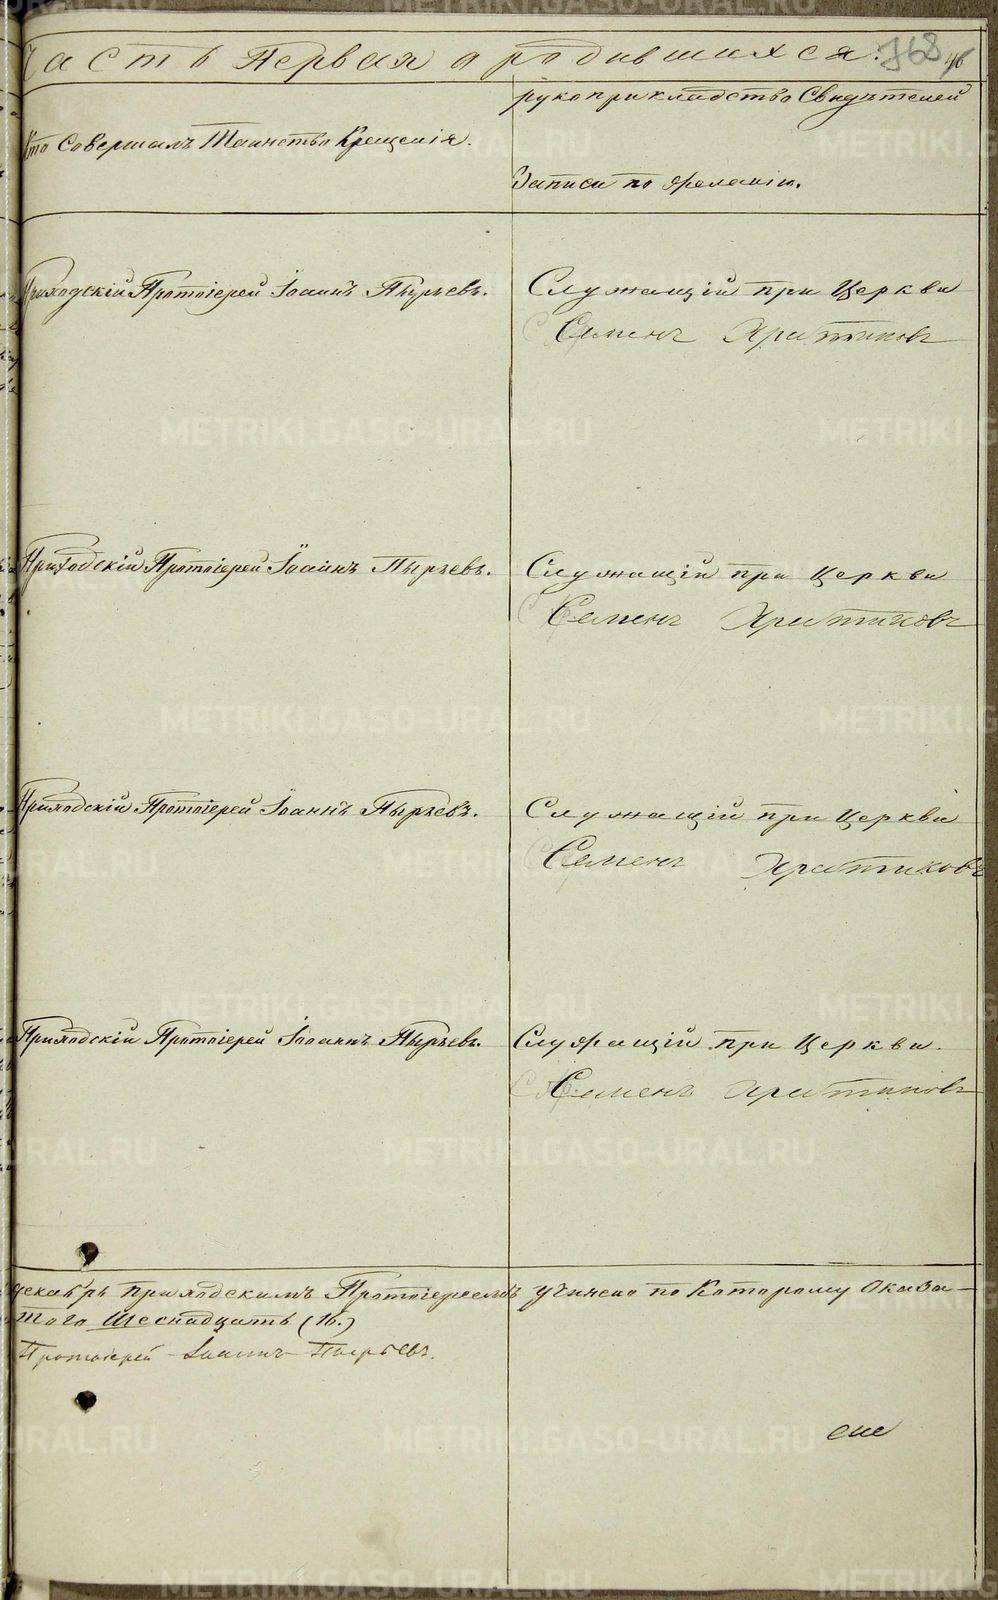 Часть Первая о родившихся. 768
Кто Совершалъ Таинство Крещенія.
рукоприкладство Свидѣтелей
Записи по желанію.
Приходскій Протоіерей Іоаннъ Пырьевъ. Служащій при Церкви
Семенъ Хритиновъ
Приходскій Протоіерей Іоаннъ Пырьевъ. Служащій при Церкви
Семенъ Хритиновъ
Приходскій Протоіерей Іоаннъ Пырьевъ. Служащій при Церкви
Семенъ Хритиновъ
Приходскій Протоіерей Іоаннъ Пырьевъ. Служащій при Церкви.
Семенъ Хритиновъ
декабрь приходскимъ Протоіереемъ учинено по Которому Оказа-
того Шеснадцать (16.)
Протоіерей Іоаннъ Пырьевъ.
METRIKI.GASO-URAL.RU